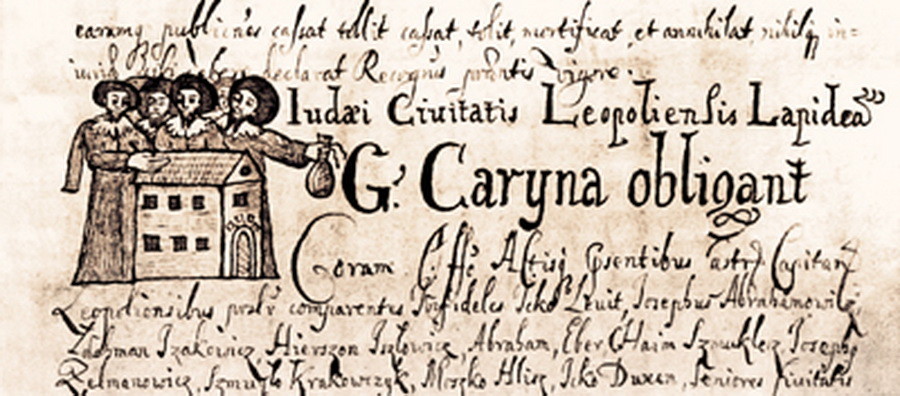 earumq publicnes cassat tollit cassat, tolit, mortificat, et annihilat, nihilq in=
declarat Recognis prontis vigore.
Iudæi Civitatis Leopoliensis Lapideā
G: Caryna obligant
Coram Offō Actisq Psentibus Castr. Capitan
Leopoliensibus comparentes Infideles Icko Leuit, Iosephus Abrahamowicz,
Zalman Izakowicz, Hierszon Iszlowicz, Abraham, Eber Chaim Szmuklerz Ioseph
Zelmanowicz, Szmuylo Krakowczyk, Moszko Hlisz, Icko Duxen, Seniores Civitatis